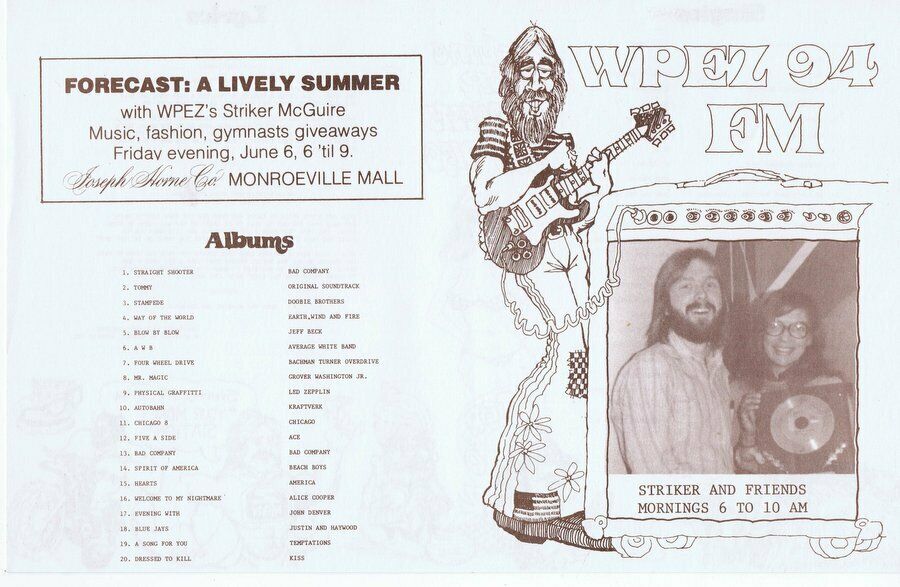 FORECAST: A LIVELY SUMMER
with WPEZ's Striker McGuire
Music, fashion, gymnasts giveaways
Friday evening, June 6, 6 'til 9.
Joseph Horne Co. MONROEVILLE MALL
Albums
1. STRAIGHT SHOOTER BAD COMPANY
2. TOMMY ORIGINAL SOUNDTRACK
3. STAMPEDE DOOBIE BROTHERS
4. WAY OF THE WORLD EARTH,WIND AND FIRE
5. BLOW BY BLOW JEFF BECK
6. A W B AVERAGE WHITE BAND
7. FOUR WHEEL DRIVE BACHMAN TURNER OVERDRIVE
8. MR. MAGIC GROVER WASHINGTON JR.
9. PHYSICAL GRAFFITTI LED ZEPPLIN
10. AUTOBAHN KRAFTVERK
11. CHICAGO 8 CHICAGO
12. FIVE A SIDE ACE
13. BAD COMPANY BAD COMPANY
14. SPIRIT OF AMERICA BEACH BOYS
15. HEARTS AMERICA
16. WELCOME TO MY NIGHTMARE ALICE COOPER
17. EVENING WITH JOHN DENVER
18. BLUE JAYS JUSTIN AND HAYWOOD
19. A SONG FOR YOU TEMPTATIONS
20. DRESSED TO KILL KISS
WPEZ 94
FM
STRIKER AND FRIENDS
MORNINGS 6 TO 10 AM